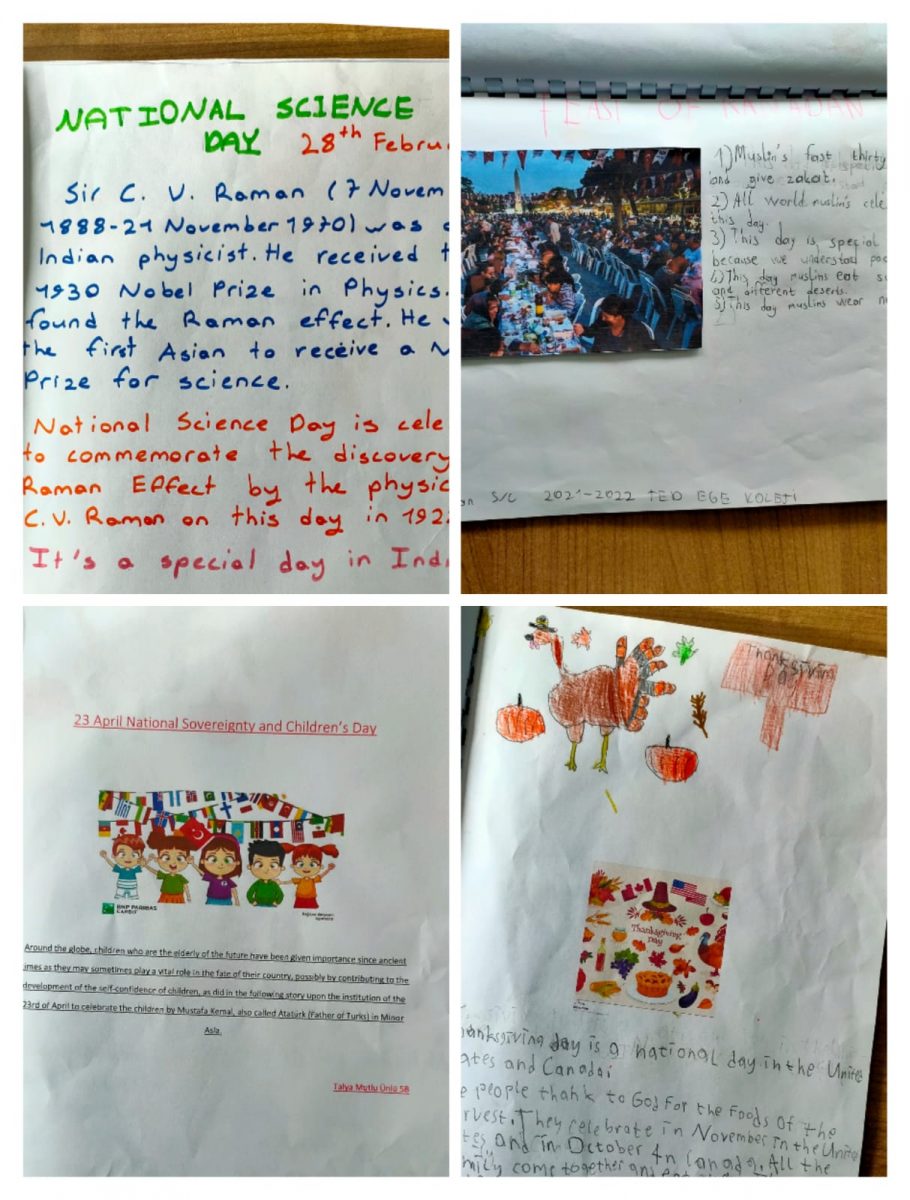 NATIONAL SCIENCE
DAY 28th Februa
Sir C. V. Raman (7 Novem
1888-21 November 1970) was a
Indian physicist. He received t
1930 Nobel Prize in Physics.
found the Raman effect. He
the first Asian to receive a N
Prize for science.
National Science Day is cele
to commemorate the discovery
Raman Effect by the physic
C.V. Raman on this day in 192
It's a special day in Indi
FEAST OF RAMADAN
1) Muslin's fast thirty
and give zakat.
2) All world muslin's cele
this day.
3) This day is special
because we understood poo
4) This day muslims eat s
and different deserts.
5) This day muslims wear n
S/C 2021-2022 TED EGE KOLEJİ
23 April National Sovereignty and Children's Day
BNP PARIBAS
CARDIF
Around the globe, children who are the elderly of the future have been given importance since ancient
imes as they may sometimes play a vital role in the fate of their country, possibly by contributing to the
development of the self-confidence of children, as did in the following story upon the institution of the
23rd of April to celebrate the children by Mustafa Kemal, also called Atatürk (Father of Turks) in Minor
Asia.
Talya Mutlu Ünlü 5B
Thanksgiving
Day
Thanksgiving
Day
hanksgiving day is a national day in the Unite
ates and Canada.
e people thank to God For the Foods of the
rvest. They celebrate in November in the Unite
tes and in October in Canada. All the
mily come together an